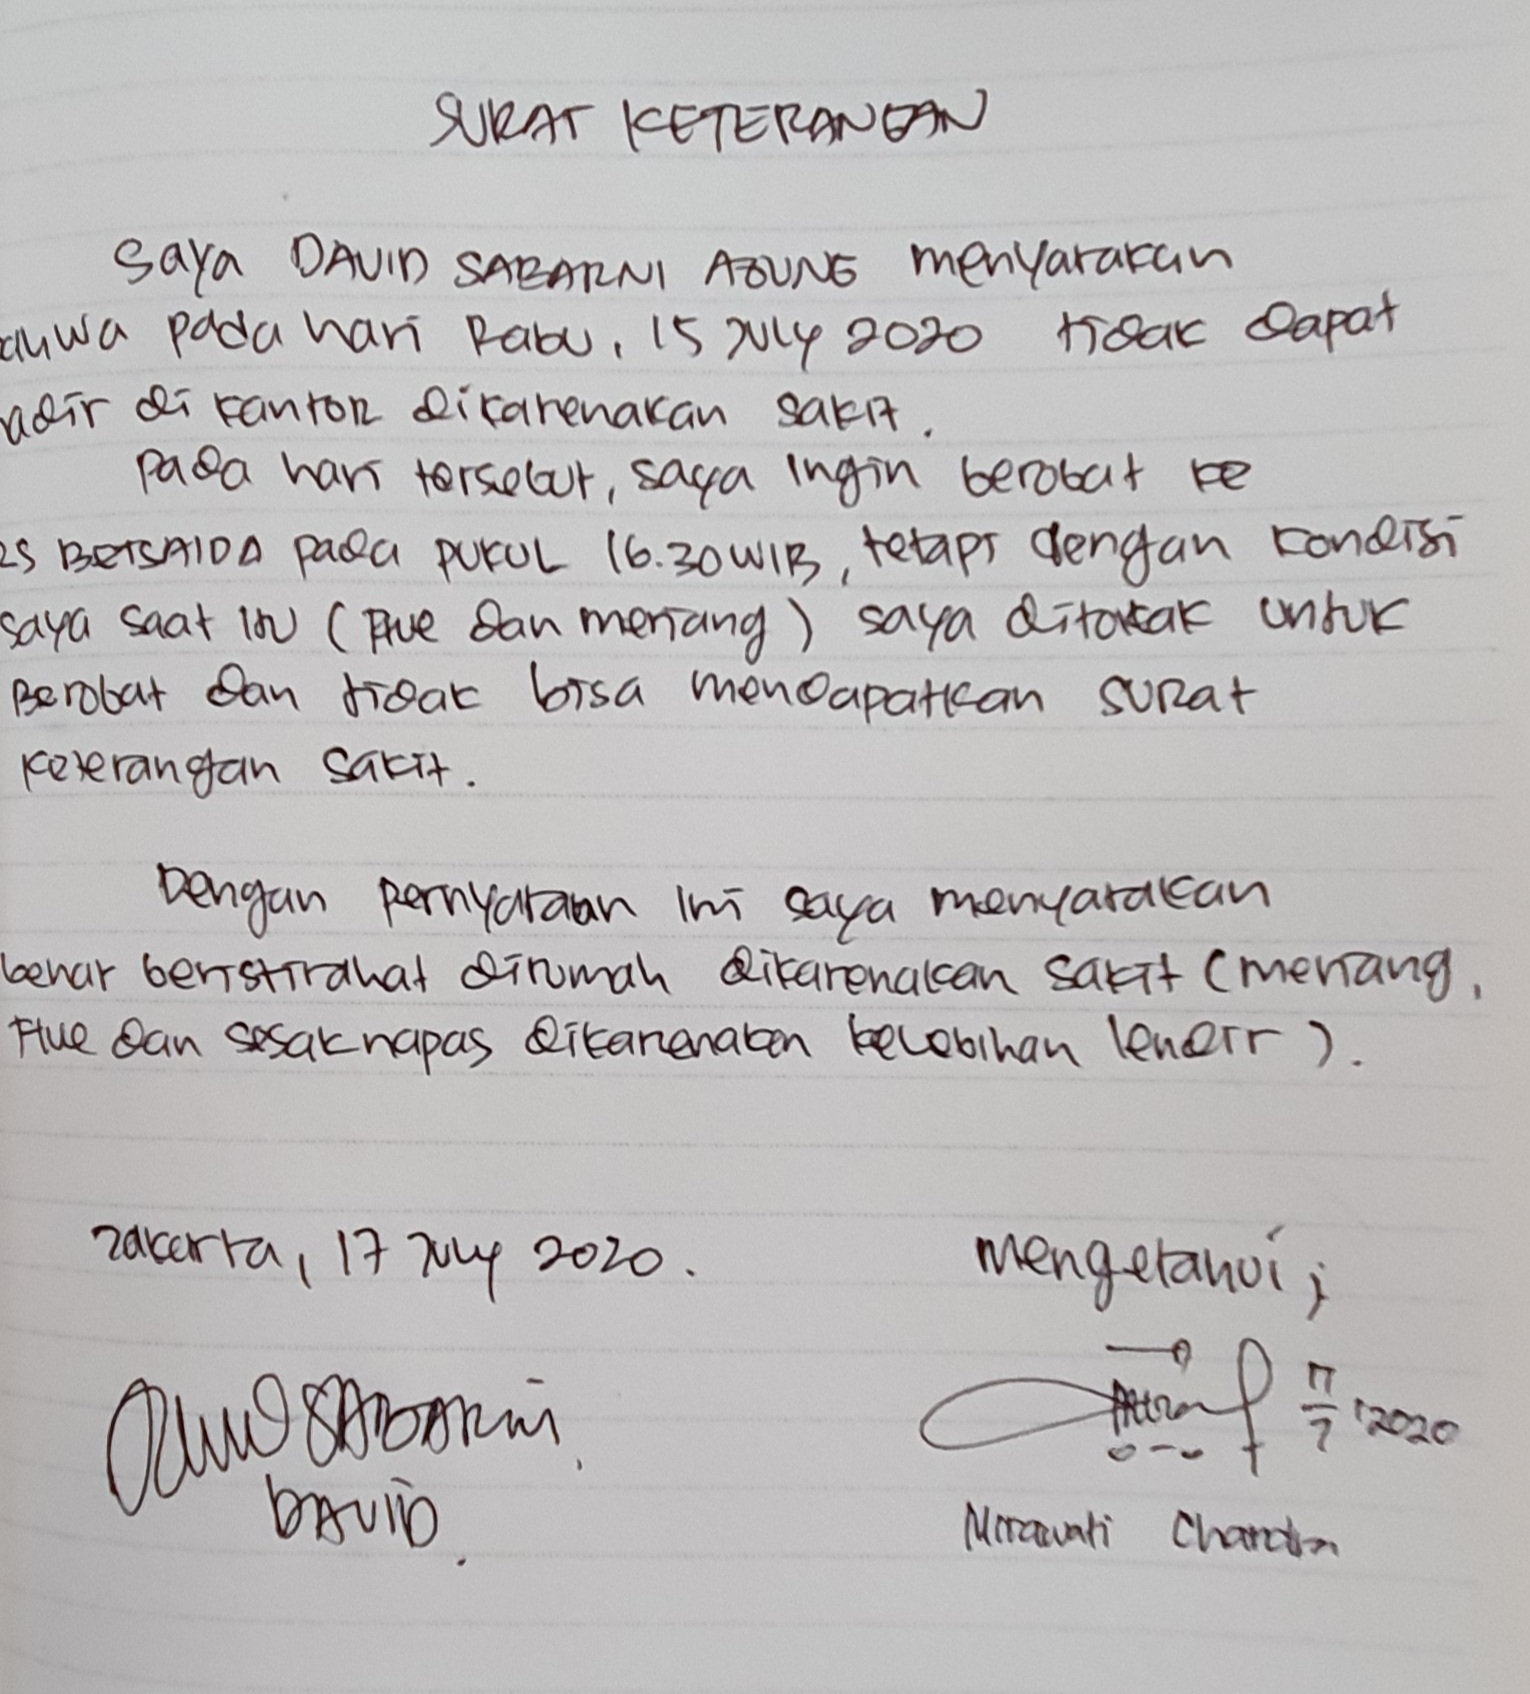 SURAT KETERANGAN
Saya DAVID SABARNI AGUNG menyatakan
ahwa pada hari Rabu, 15 July 2020 tidak dapat
adir di kantor dikarenakan sakit.
Pada hari tersebut, saya ingin berobat ke
RS BETSAIDA pada PUKUL 16.30 WIB, tetapi dengan kondisi
saya saat itu (Flue dan meriang) saya ditolak untuk
Berobat dan tidak bisa mendapatkan surat
keterangan sakit.
Dengan pernyataan ini saya menyatakan
benar beristirahat dirumah dikarenakan sakit (meriang,
Flue dan sesak napas dikarenakan kelebihan lendir).
Jakarta, 17 July 2020.
mengetahui;
17/7 '2020
DAVID.
Mirawati Chandra